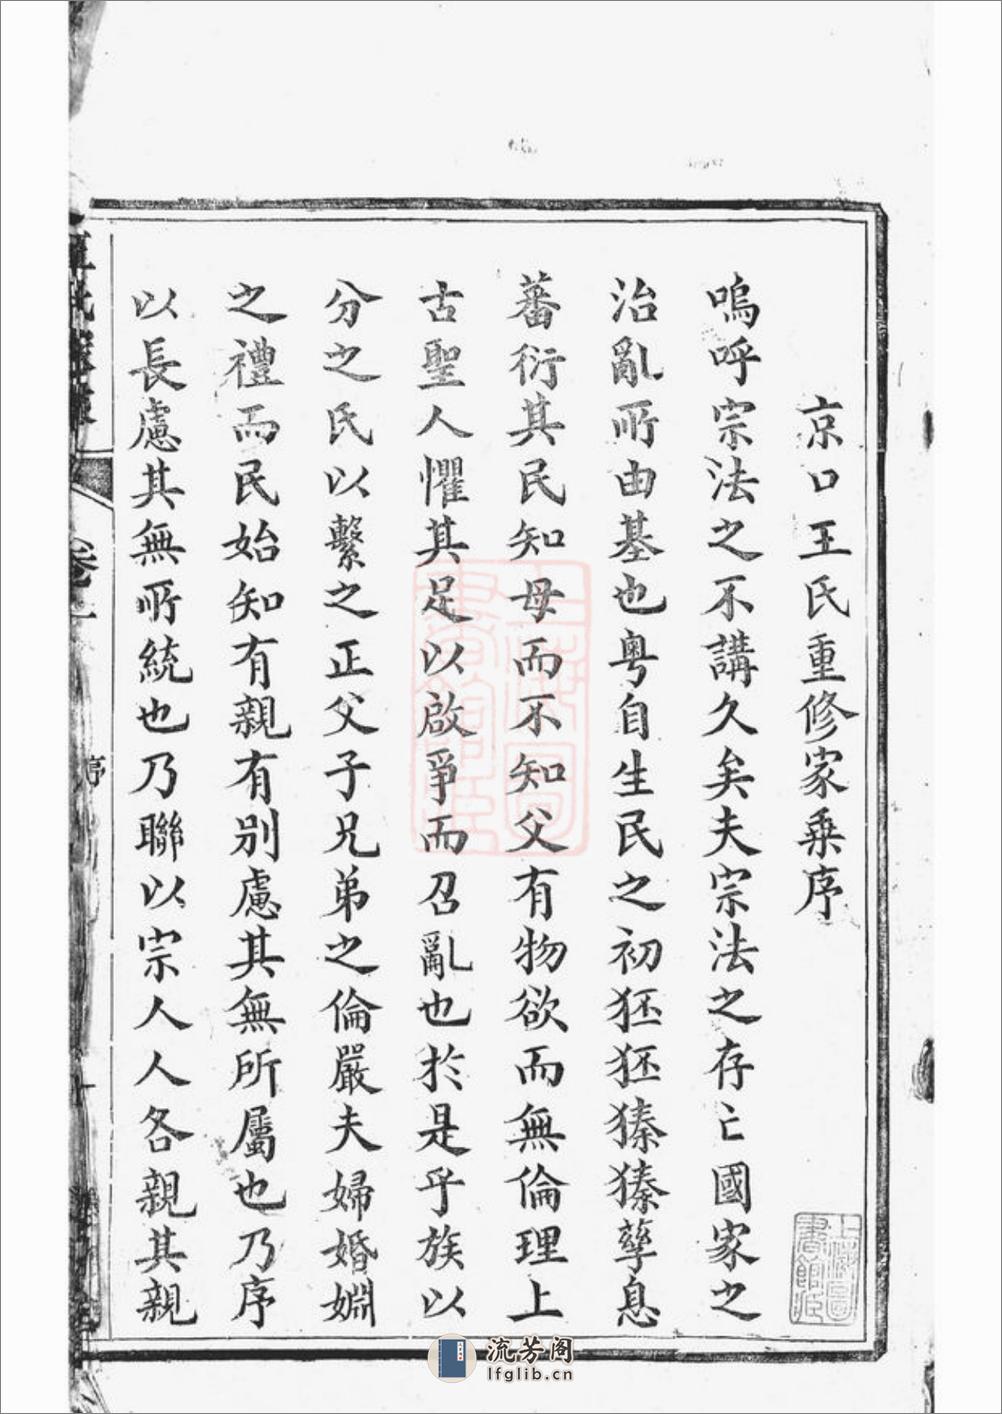 京口王氏重修家乘序
嗚呼宗法之不講久矣夫宗法之存亡國家之
治亂所由基也粵自生民之初狉狉獉獉孳息
蕃衍其民知母而不知父有物欲而無倫理上
古聖人懼其足以啟爭而召亂也於是乎族以
分之氏以繫之正父子兄弟之倫嚴夫婦婚婣
之禮而民始知有親有別慮其無所屬也乃序
以長慮其無所統也乃聯以宗人人各親其親
序
上海圖書館藏
上海圖書館藏
流芳阁
lfglib.cn